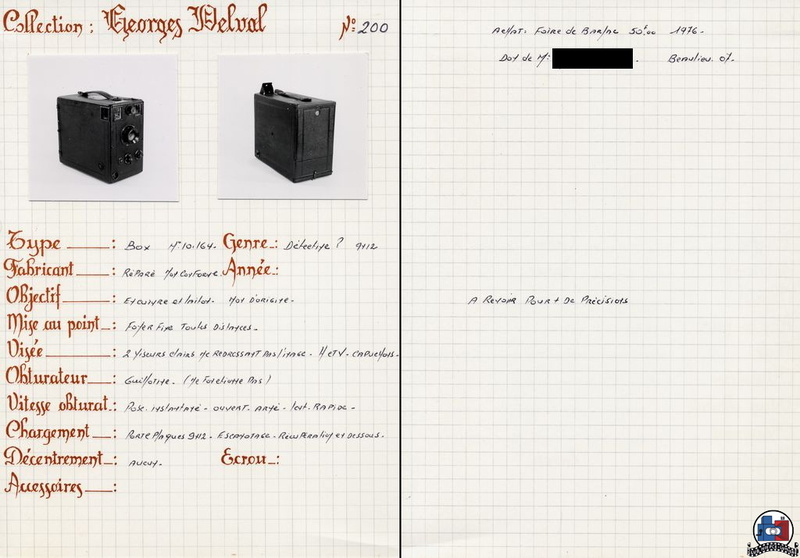 Collection : Georges Delval N°: 200
Type : Box N°: 10.164. Genre : Détective ? 9x12
Fabricant : Réparé Non Conforme. Année :
Objectif : En cuivre et laiton. Non d'origine.
Mise au point : Foyer Fixe Toutes Distances.
Visée : 2 Viseurs clairs ne redressant pas l'image. H et V. Capuchons.
Obturateur : Guillotine. (Ne fonctionne pas)
Vitesse obturat. : Pose. instantané - ouvert. armé - lent. rapide -
Chargement : Porte plaques 9x12. Escamotage. Récupération en dessous.
Décentrement : aucun. Ecrou :
Accessoires :
Achat: Foire de 50F,00 1976.
Dot de Mr: . Beaulieu. 07.
A Revoir Pour + De Précisions